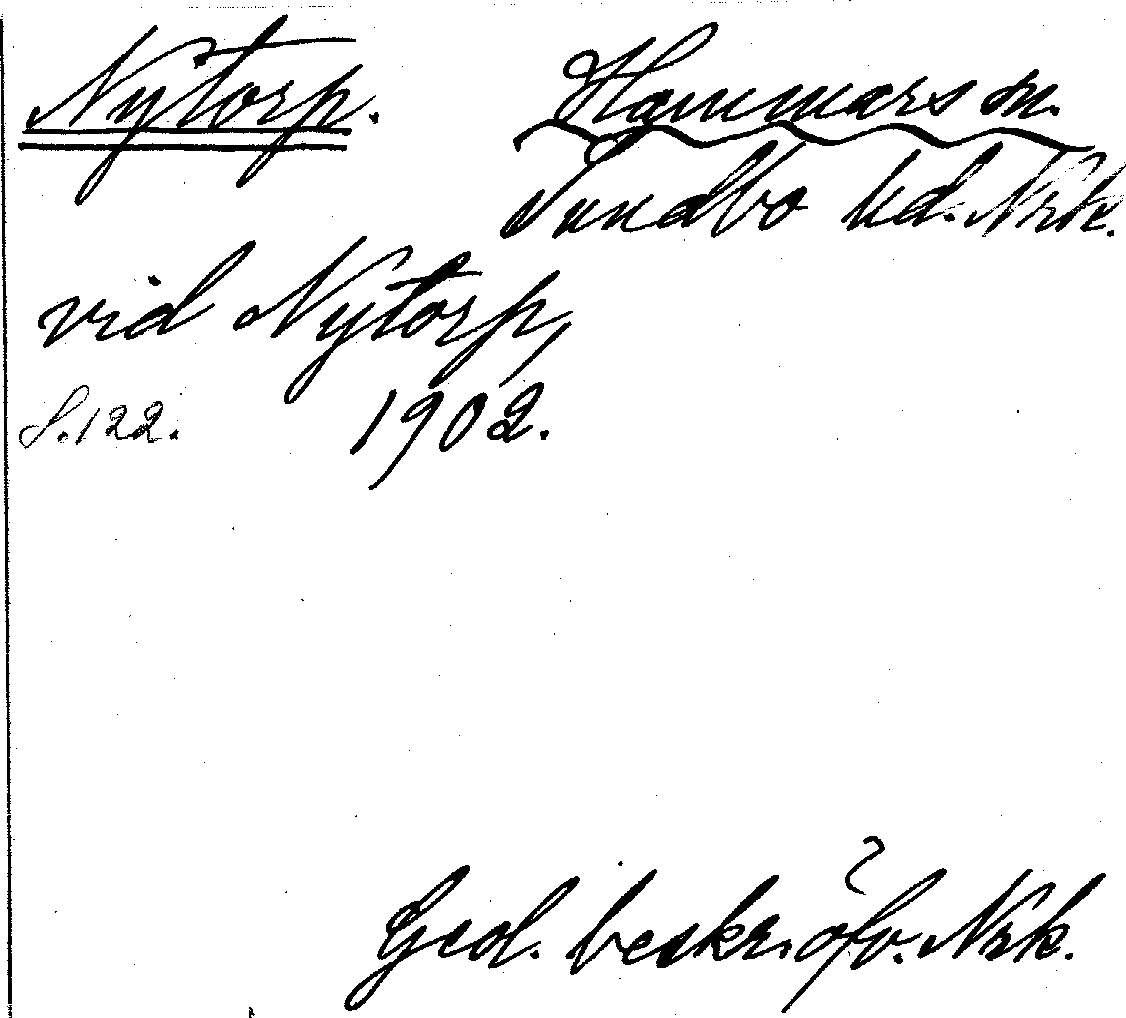 Nytorp. Hammars sn.
Sundbo hd. Nrk.
vid Nytorp,
S. 122. 1902.
Geol. beskr. öfv. Nrk.